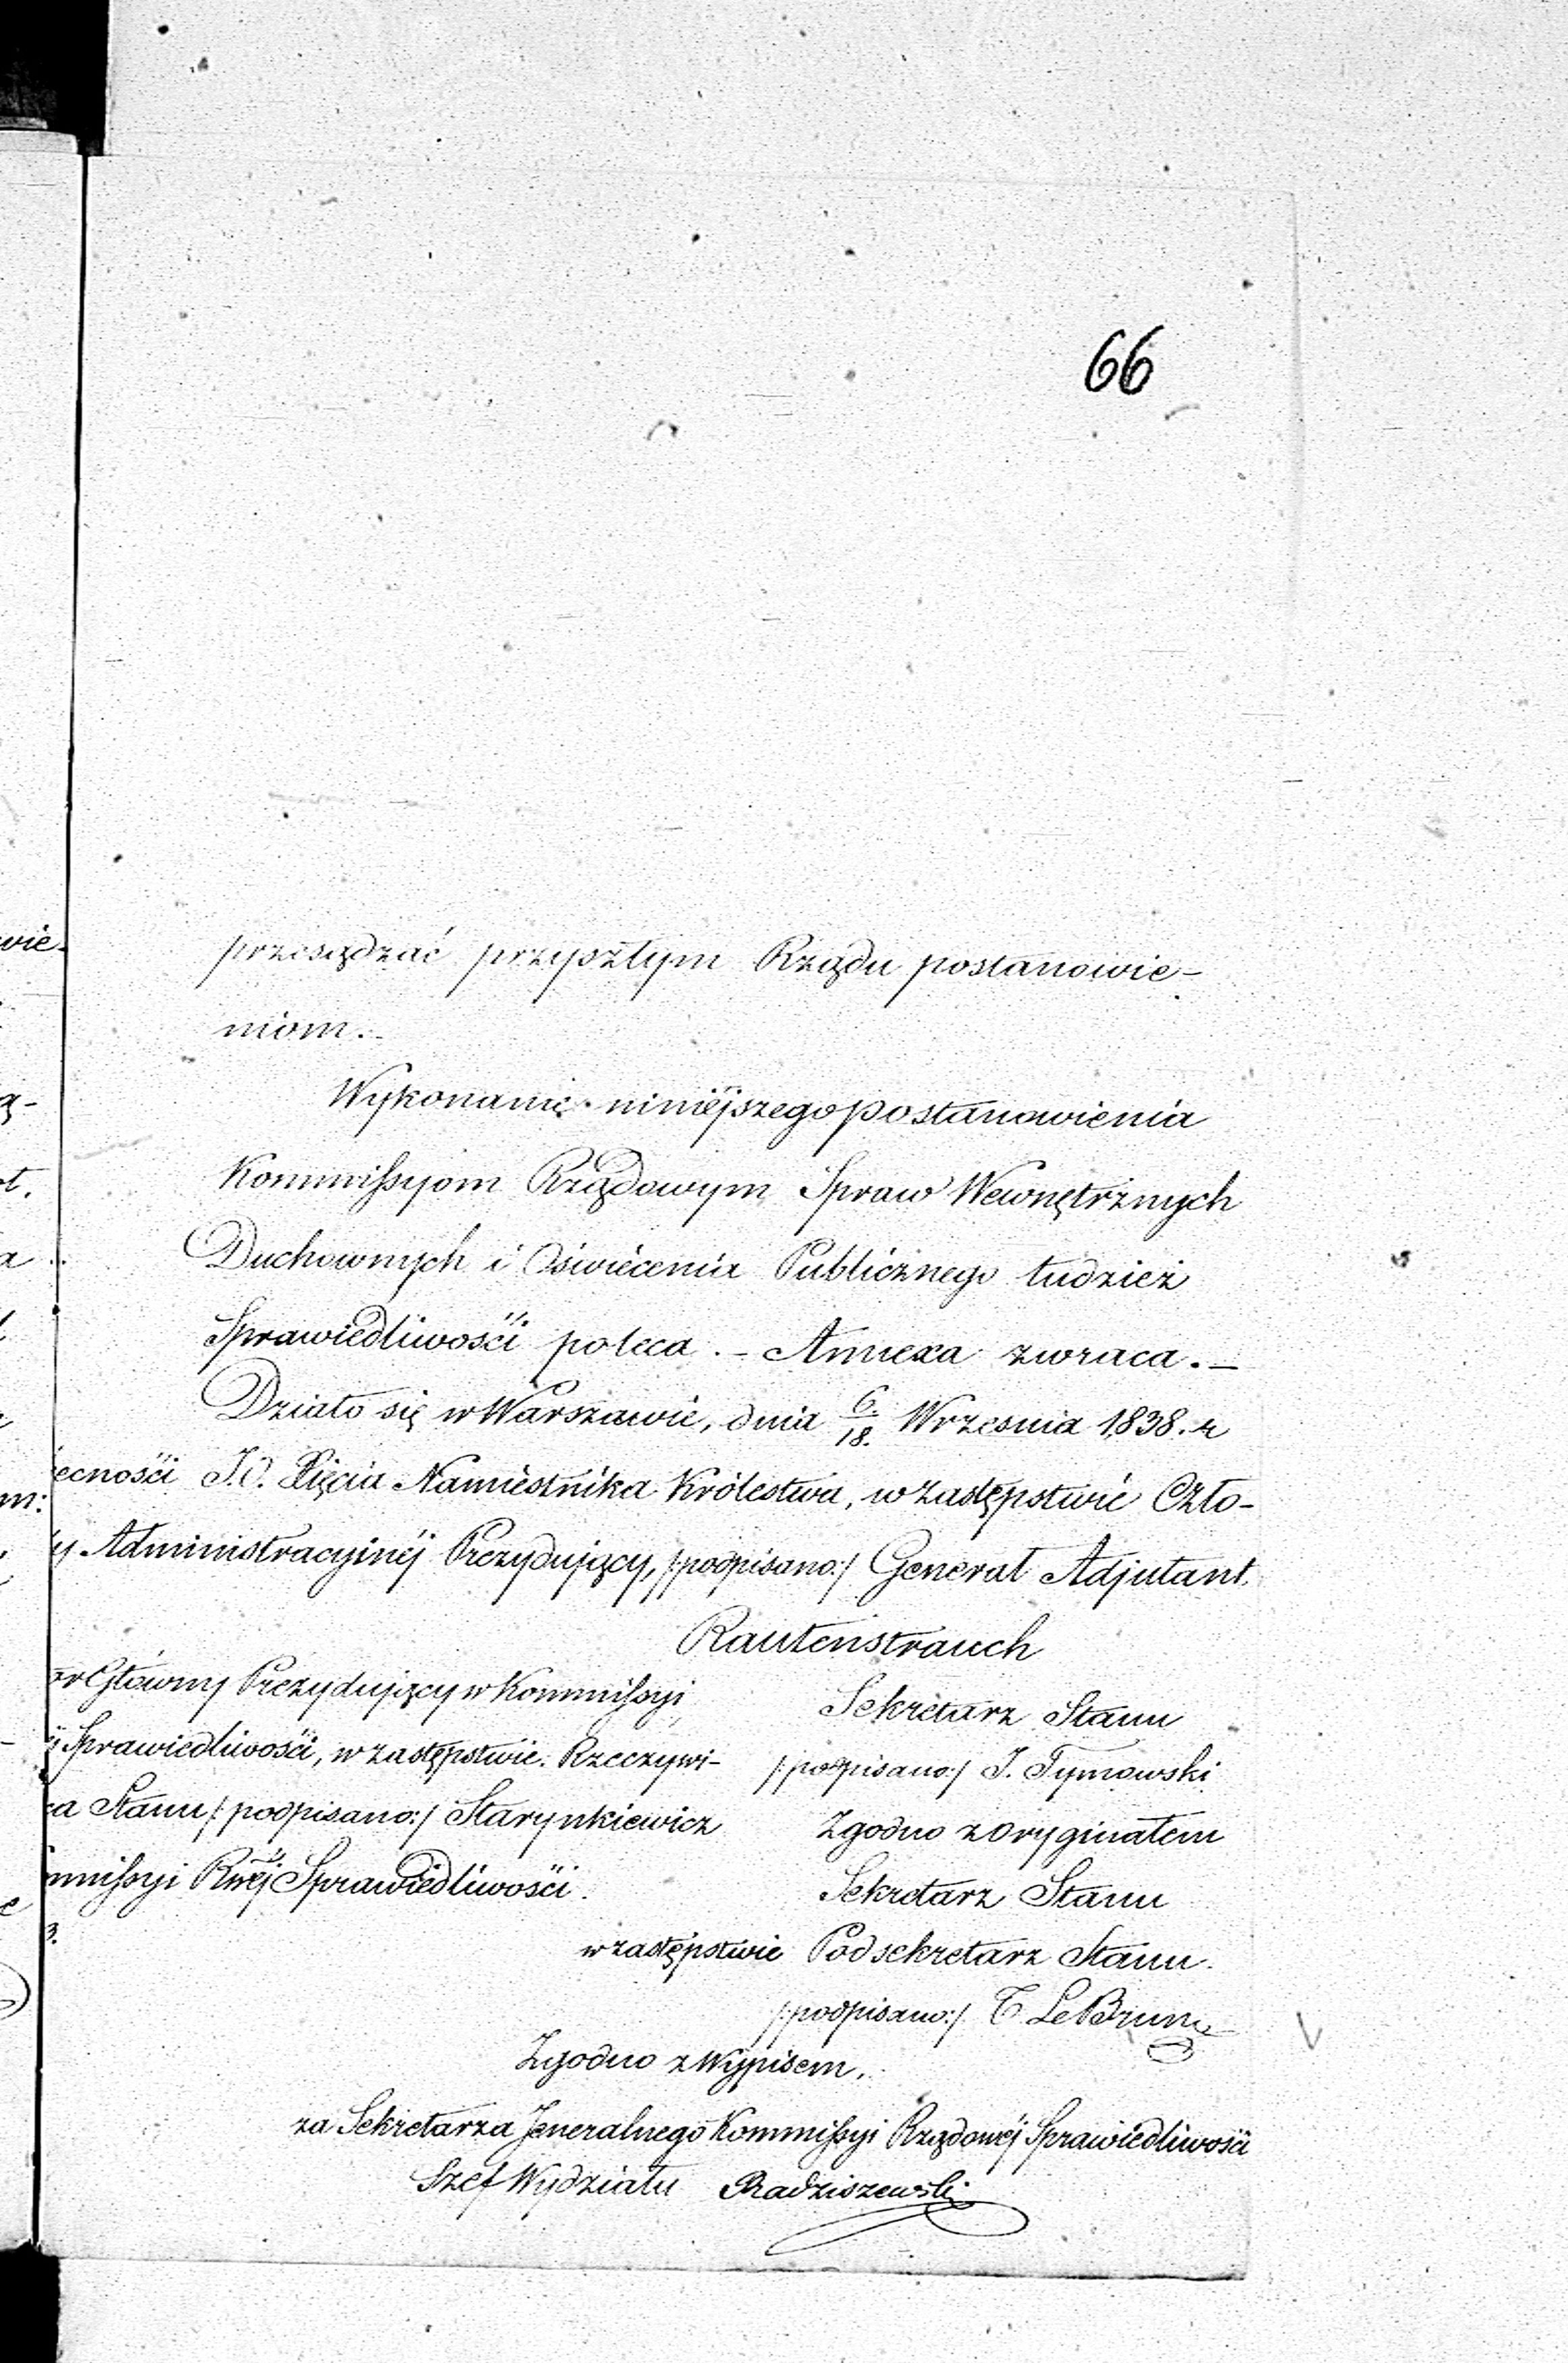 66
przesądzać przyszłym Rządu postanowie-
niom.-
Wykonanie niniéjszego postanowienia
Kommissyom Rządowym Spraw Wewnętrznych
Duchownych i Oświecenia Publicznego tudzież
Sprawiedliwości poleca. - Annexa zwraca. -
Działo się w Warszawie, dnia 6./18. Wrzesnia 1838. r
ecności J.O. Xięcia Namiestnika Królestwa, w zastępstwie Czło-
y Administracyjnéj Prezydujący, /:podpisano:/ Generał Adjutant.
Rautenstrauch
or Główny Prezydujący w Kommissyi
Sprawiedliwości, w zastępstwie. Rzeczywi-
ca Stanu /:podpisano:/ Starynkiewicz
mmissyi Rwéj Sprawiedliwości.
Sekretarz Stanu
/:podpisano:/ J. Tymowski
Zgodno z oryginałem
Sekretarz Stanu
w zastępstwie Podsekretarz Stanu.
/:podpisano:/ T. Le Brun
Zgodno z Wypisem,
za Sekretarza Jeneralnego Kommissyi Rządowéj Sprawiedliwości
Szef Wydziału Radziszewski